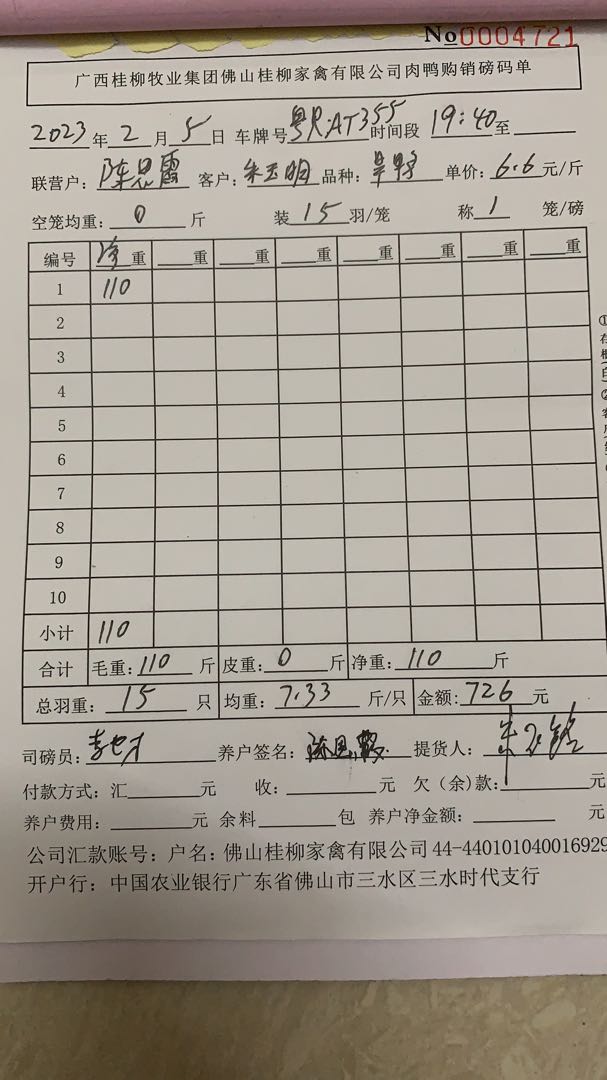 No 0004721
广西桂柳牧业集团佛山桂柳家禽有限公司肉鸭购销磅码单
2023年2月5日 车牌号粤R·AT355时间段19:40至
联营户:陈思霞 客户:朱玉明品种: 单价:6.6元/斤
空笼均重:0斤 装15羽/笼 称1笼/磅
编号 净重 重 重 重 重 重 重 重
1 110
2
3
4
5
6
7
8
9
10
小计 110
合计 毛重:110斤 皮重:0斤 净重:110斤
总羽重:15只 均重:7.33斤/只 金额:726元
司磅员: 养户签名:陈思霞 提货人:
付款方式:汇 元 收: 元 欠(余)款: 元
养户费用: 元 余料 包 养户净金额: 元
公司汇款账号:户名:佛山桂柳家禽有限公司44-440101040016929
开户行:中国农业银行广东省佛山市三水区三水时代支行